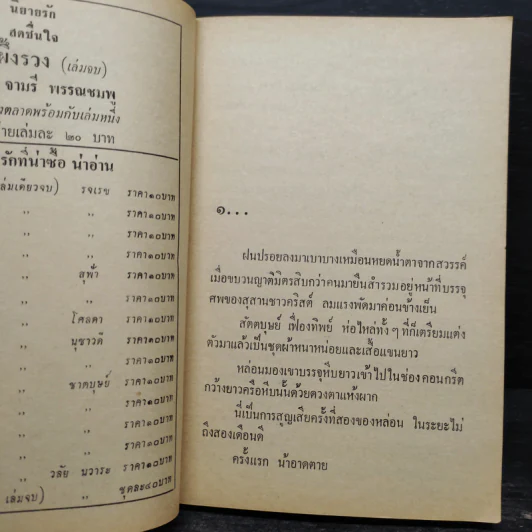 นิยายรัก
สดชื่นใจ
ผึ้งรวง (เล่มจบ)
จามรี พรรณชมพู
งตลาดพร้อมกับเล่มหนึ่ง
ายเล่มละ ๒๐ บาท
รักที่น่าซื้อ น่าอ่าน
ล่มเดียวจบ) รจเรข ราคา๑๐บาท
,, ,, ราคา๑๐บาท
,, ,, ราคา๑๐บาท
,, ,, ราคา๑๐บาท
,, ลุฬา ราคา๑๐บาท
,, ,, ราคา๑๐บาท
,, โศลดา ราคา๑๐บาท
,, นุชาวดี ราคา๑๐บาท
,, ,, ราคา๑๐บาท
,, ชาตบุษย์ ราคา๑๐บาท
,, ,, ราคา๑๐บาท
,, ,, ราคา๑๐บาท
,, ,, ราคา๑๐บาท
,, วลัย นวาระ ราคา๑๐บาท
เล่มจบ) ,, ชุดละ๔๐บาท
๑...
ฝนปรอยลงมาเบาบางเหมือนหยดน้ำตาจากสวรรค์
เมื่อขบวนญาติมิตรสิบกว่าคนมายืนสำรวมอยู่หน้าที่บรรจุ
ศพของสุสานชาวคริสต์ ลมแรงพัดมาค่อนข้างเย็น
สัตตบุษย์ เฟื่องทิพย์ ห่อไหล่ทั้ง ๆ ที่ก็เตรียมแต่ง
ตัวมาแล้วเป็นชุดผ้าหนาหน่อยและเสื้อแขนยาว
หล่อนมองเขาบรรจุหีบยาวเข้าไปในช่อง คอนกรีต
กว้างยาวครือหีบนั้นด้วยดวงตาแห้งผาก
นี่เป็นการสูญเสียครั้งที่สองของหล่อน ในระยะไม่
ถึงสองเดือนดี
ครั้งแรก น้าอาดตาย